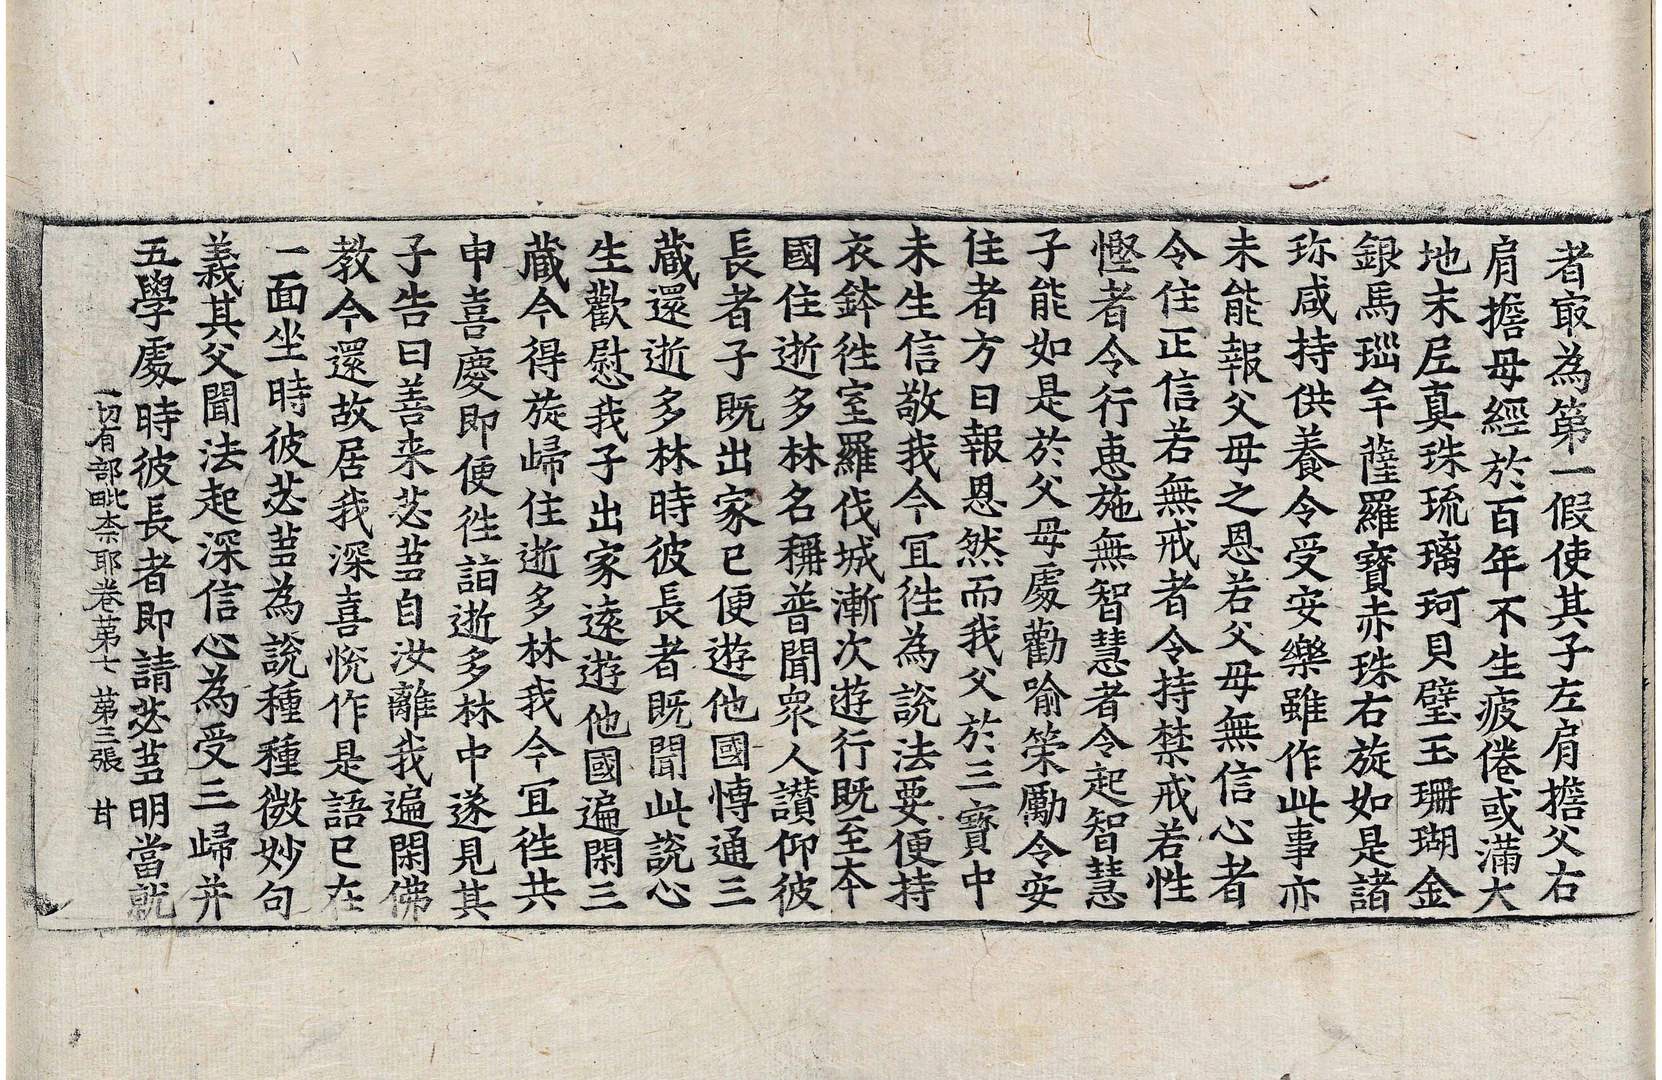 者冣為第一假使其子左肩擔父右
肩擔母經於百年不生疲倦或滿大
地末尼真珠琉璃珂貝璧玉珊瑚金
銀馬瑙牟薩羅寶赤珠右旋如是諸
珎咸持供養令受安樂雖作此事亦
未能報父母之恩若父母無信心者
令住正信若無戒者令持禁戒若性
慳者令行惠施無智慧者令起智慧
子能如是於父母處勸喻策勵令安
住者方曰報恩然而我父於三寶中
未生信敬我今冝徃為說法要便持
衣鉢徃室羅伐城漸次遊行既至本
國住逝多林名稱普聞衆人讃仰彼
長者子既出家已便遊他國博通三
蔵還逝多林時彼長者既聞此說心
生歡慰我子出家遠遊他國遍閑三
蔵今得旋歸住逝多林我今冝徃共
申喜慶即便徃詣逝多林中遂見其
子告曰善来苾蒭自汝離我遍閑佛
教今還故居我深喜悅作是語已在
一面坐時彼苾蒭為說種種微妙句
義其父聞法起深信心為受三歸并
五學處時彼長者即請苾蒭明當就
一切有部毗柰耶卷第七 第三張 甘